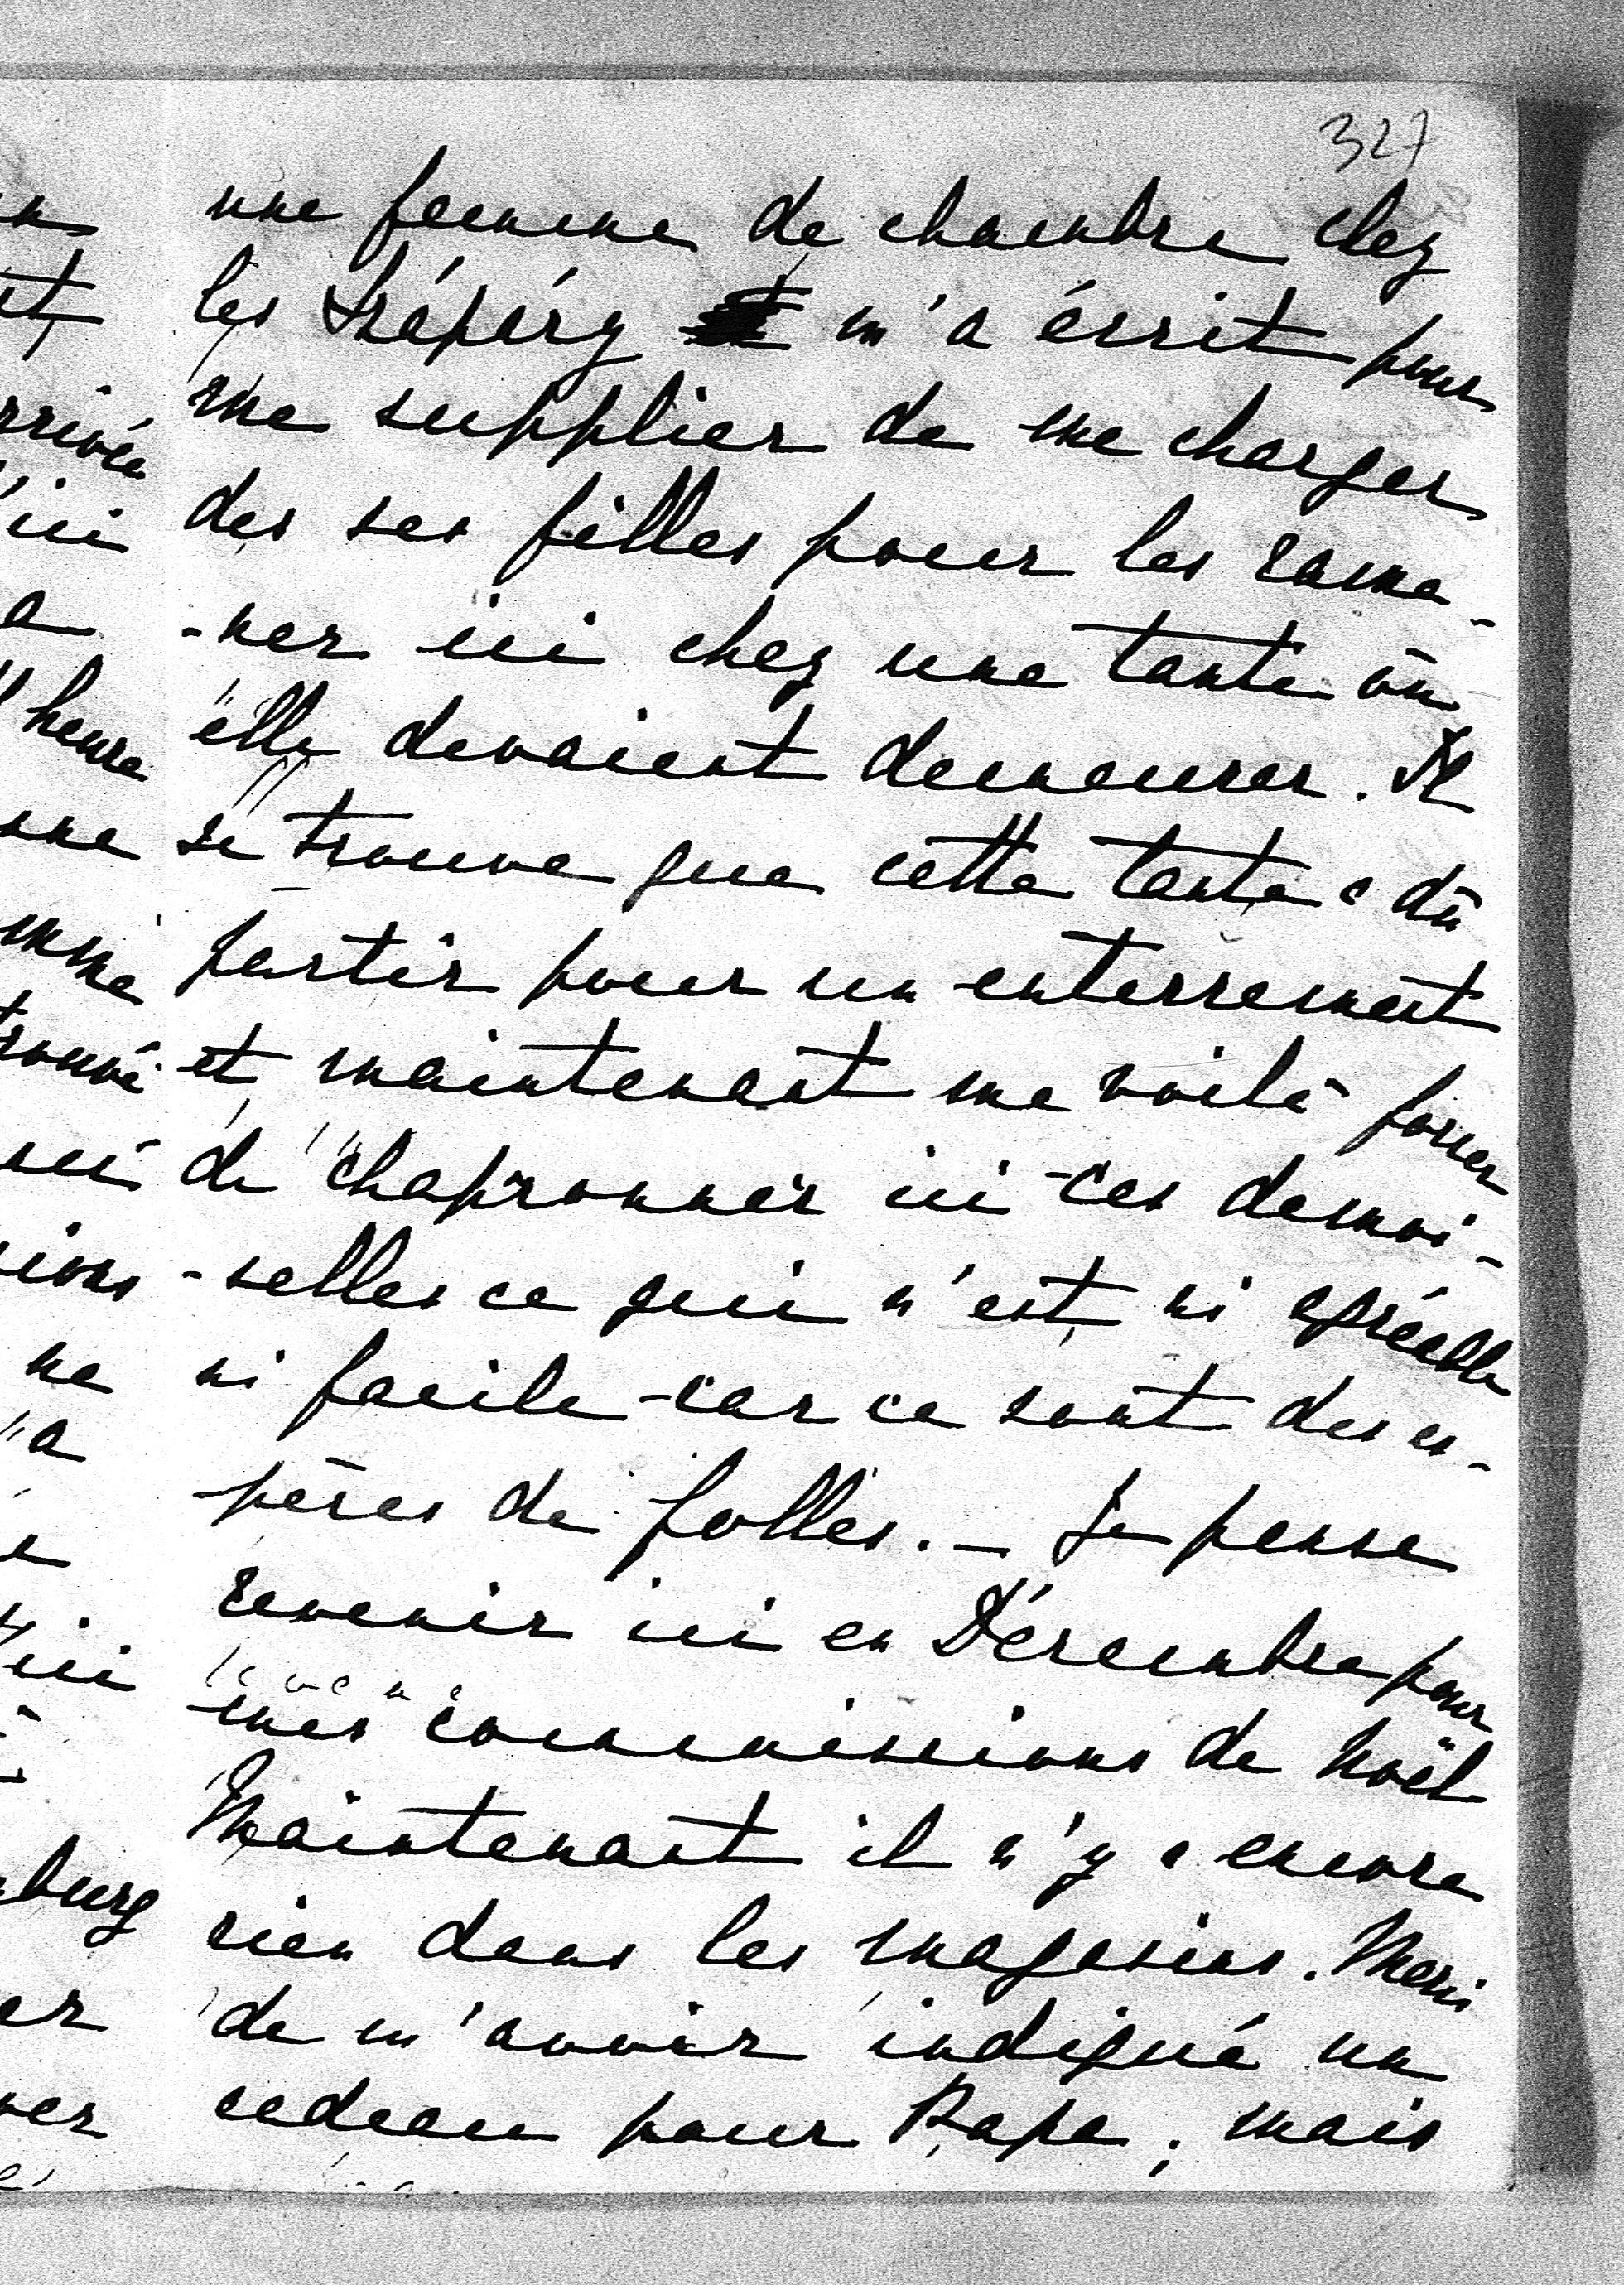 327
une femme de chambre chez
les Trépérz m'a écrit pour
me supplier de me charger
des ses filles pour les rame-
-ner ici chez une tante où
elle devaient demeurer. Il
se trouve que cette tante a dû
partir pour un enterrement
et maintenant me voilà forcer
de chapronner ici ces demoi-
-selles ce qui n'est ni agréable
ni facile car ce sont des es-
pèces de folles. — Je pense
revenir ici en Décembre pour
mes commissions de Noël
Maintenant il n'y a encore
rien dans les magasins. Merci
de m'avoir indiqué un
cadeau pour Papa; mais